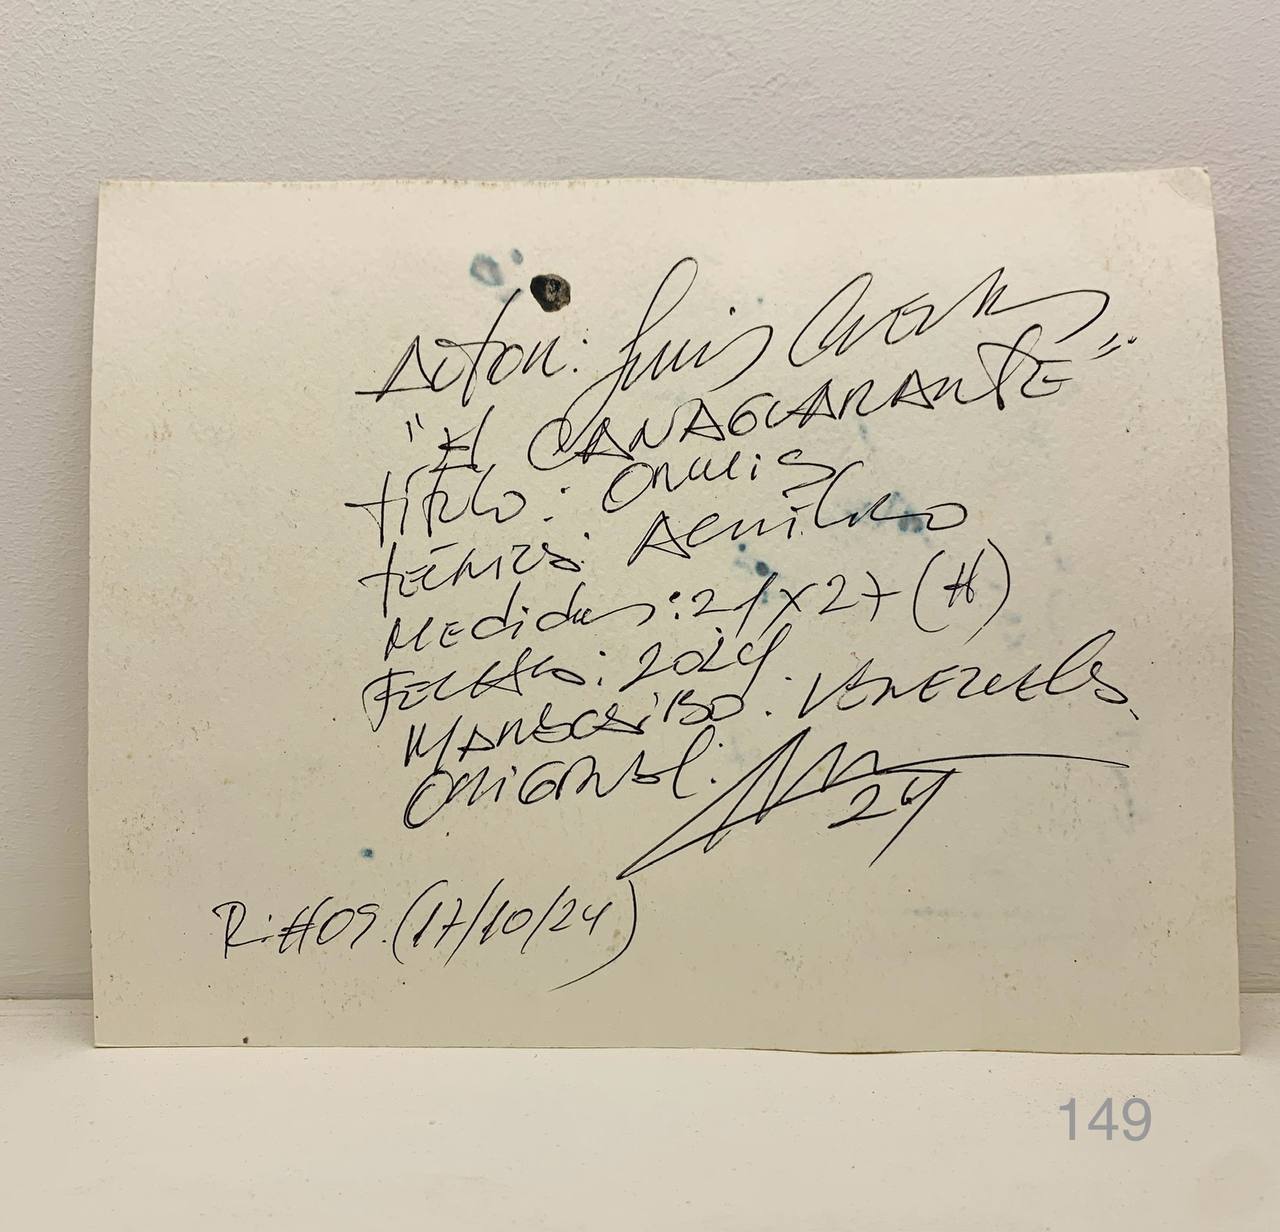 Autor: Luis Cuevas
"El CANAGUARANTE"
título: Orulis
técnica: Acrílico
Medidas: 21x27 (H)
FECHA: 2024
MANSCRIBO: VENEZUELA
ORIGINAL:
24
R:#09.(17/10/24)
149